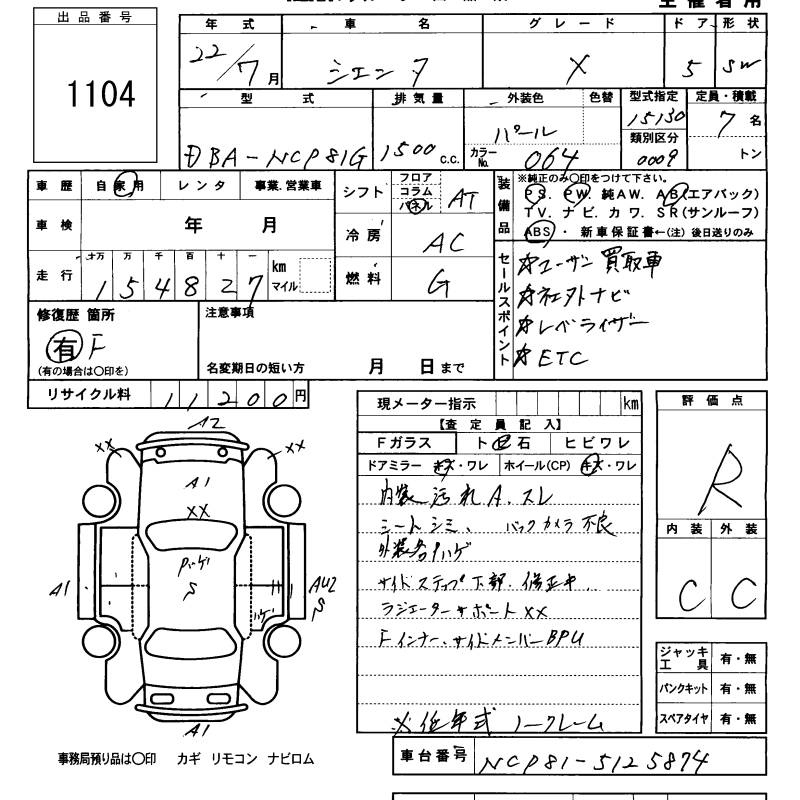 出品番号
1104
年式 車名 グレード ドア 形状
22/7月 シエンタ X 5 SW
型式 排気量 外装色 色替 型式指定 定員・積載
DBA-NCP81G 1500c.c. パール 15130 7名
カラーNo. 064 類別区分 0009 トン
車歴 自家用 レンタ 事業.営業車
シフト フロア コラム パネル AT
車検 年 月
冷房 AC
走行 十万 万 千 百 十 一
154827 km マイル
燃料 G
装備品 ※純正のみ〇印をつけて下さい。
PS. PW. 純AW. AB(エアバック)
TV. ナビ. カワ. SR(サンルーフ)
ABS・新車保証書←(注) 後日送りのみ
セールスポイント
☆ユーザー買取車
☆社外ナビ
☆レベライザー
☆ETC
修復歴 箇所
有 F
(有の場合は〇印を)
注意事項
名変期日の短い方 月 日まで
リサイクル料 11200円
A2
XX
XX
A1
XX
Pハゲ
S
A1
AU2
S
ハゲ
A1
現メーター指示 km
【査定員記入】
Fガラス ト石 ヒビワレ
ドアミラー キズ・ワレ ホイール(CP) キズ・ワレ
内装 汚れ A. スレ
シートシミ、 バックカメラ不良
外装各ハゲ
サイドステップ下部. 修正中.
ラジエーターサポート XX
Fインナー、サイドメンバーBPU
※低年式 ノークレーム
評価点
R
内装 外装
C C
ジャッキ工具 有・無
パンクキット 有・無
スペアタイヤ 有・無
事務局預り品は〇印 カギ リモコン ナビロム
車台番号 NCP81-5125874